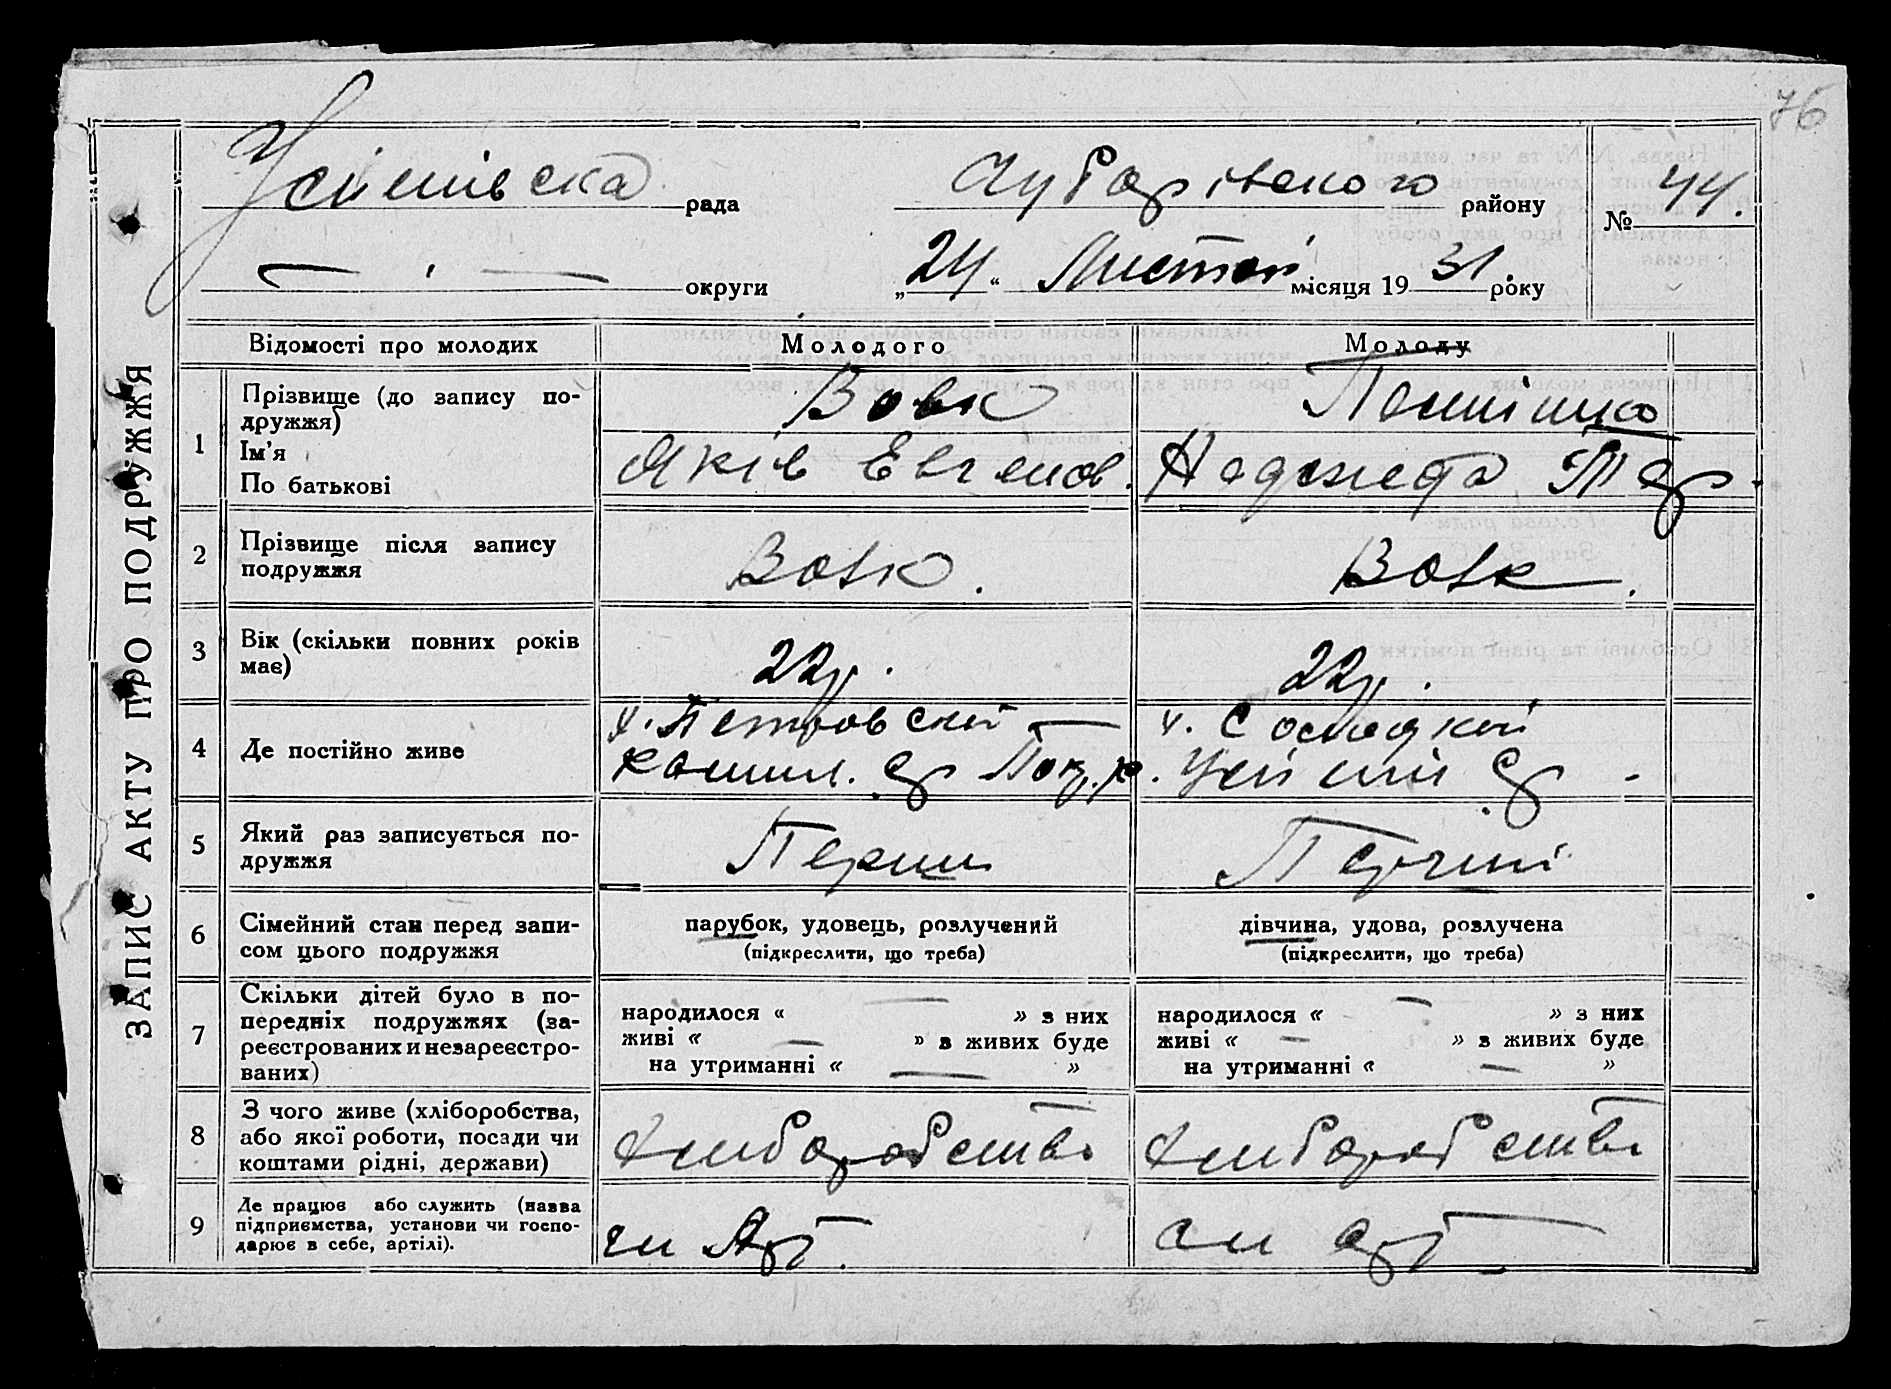 76
ЗАПИС АКТУ ПРО ПОДРУЖЖЯ
рада
Чубарівського району
№ 44.
— — округи
„24“ Листоп місяця 1931 року
Відомості про молодих
Молодого
Молоду
1
Прізвище (до запису по-
дружжя)
Ім'я
По батькові
Вовк
Яків Евгенов.
Надежда
2
Прізвище після запису
подружжя
Вовк.
Вовк.
3
Вік (скільки повних років
має)
22 р.
22 р.
4
Де постійно живе
х. Петровский
х.
5
Який раз записується по-
дружжя
Перши
Перший
6
Сімейний стан перед запи-
сом цього подружжя
парубок, удовець, розлучений
(підкреслити, що треба)
дівчина, удова, розлучена
(підкреслити, що треба)
7
Скільки дітей було в по-
передніх подружжях (за-
реєстрованих и незареєстро-
ваних)
народилося « — » з них
живі « — » в живих буде
на утриманні « — »
народилося « — » з них
живі « — » в живих буде
на утриманні « — »
8
З чого живе (хліборобства,
або якої роботи, посади чи
коштами рідні, держави)
Хлиборобство
Хлиборобство
9
Де працює або служить (назва
підприємства, установи чи госпо-
дарює в себе, артілі).
чл Арт.
чл арт